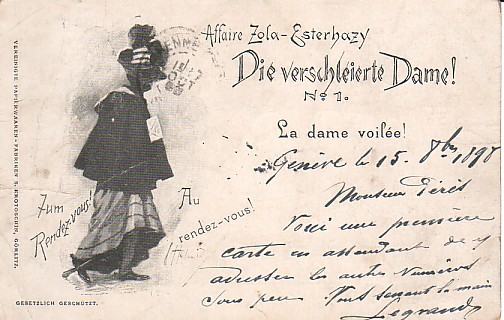 Affaire Zola-Esterhazy
Die verschleierte Dame!
No 1.
La dame voilée!
Genève le 15. 8bre 1898
Monsieur
Voici une première
carte en attendant de y
adresser les autres Numéros
sous peu. Vous serrant la main
Legrand
Zum
Rendez-vous!
Au
rendez-vous!
OCT
VEREINIGTE PAPIERWAAREN-FABRIKEN S. KROTOSCHIN, GÖRLITZ.
GESETZLICH GESCHÜTZT.